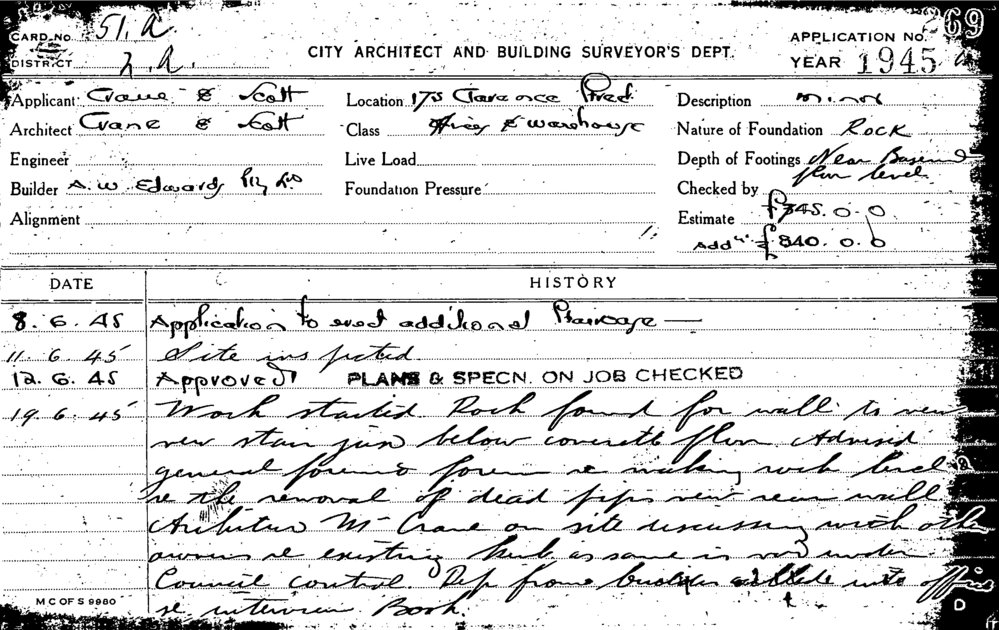 CARD No. 51. A
DISTRICT 2. A.
CITY ARCHITECT AND BUILDING SURVEYOR'S DEPT.
APPLICATION No. 269
YEAR 1945
Applicant Crane & Scott
Location 175 Clarence Street
Description minor
Architect Crane & Scott
Class Offices & warehouse
Nature of Foundation Rock
Engineer
Live Load
Depth of Footings Near Basement
floor level
Builder A. W. Edwards Pty Ltd
Foundation Pressure
Checked by
Alignment
Estimate £345. 0. 0
Add £840. 0. 0
DATE HISTORY
8. 6. 45 Application to erect additional Staircase —
11. 6. 45 Site inspected
12. 6. 45 Approved PLANS & SPECN. ON JOB CHECKED
19. 6. 45 Work started. Rock found for wall to
new stair just below concrete floor Advised
general foreman re making rock level
re the removal of dead pipe rear wall
Mr Crane on site discussing with other
owners re existing as same is under
Council control. from builder office
re interview Book.
M C OF S 9980
D